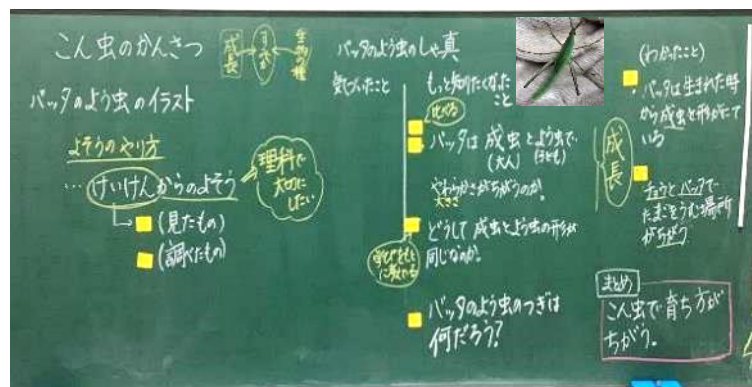 こん虫のかんさつ
成長
生物の種
バッタのよう虫のイラスト
よそうのやり方
…けいけんからのよそう
理科で
大切に
したい
(見たもの)
(調べたもの)
バッタのよう虫のしゃ真
気づいたこと
もっと知りたくなった
こと
比べる
バッタは成虫とよう虫で
(大人)(子ども)
やわらかさがちがうのか。
大きさ
どうして成虫とよう虫の形が
同じなのか。
バッタのよう虫のつぎは
何だろう?
(わかったこと)
バッタは生まれた時
から成虫と形がにて
いる
成長
チョウとバッタで
たまごをうむ場所
がちがう
まとめ
こん虫で育ち方が
ちがう。